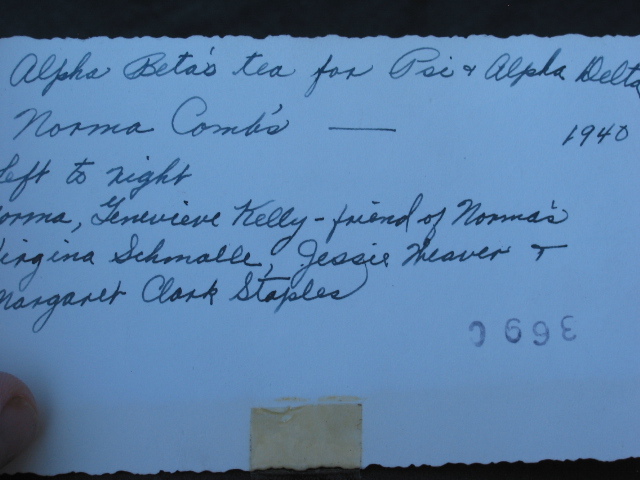 Alpha Beta's tea for Psi & Alpha Delta
Norma Comb's — 1940
Left to right
Norma, Genevieve Kelly - friend of Norma's
Virgina Schmalle, Jessie Weaver &
Margaret Clark Staples